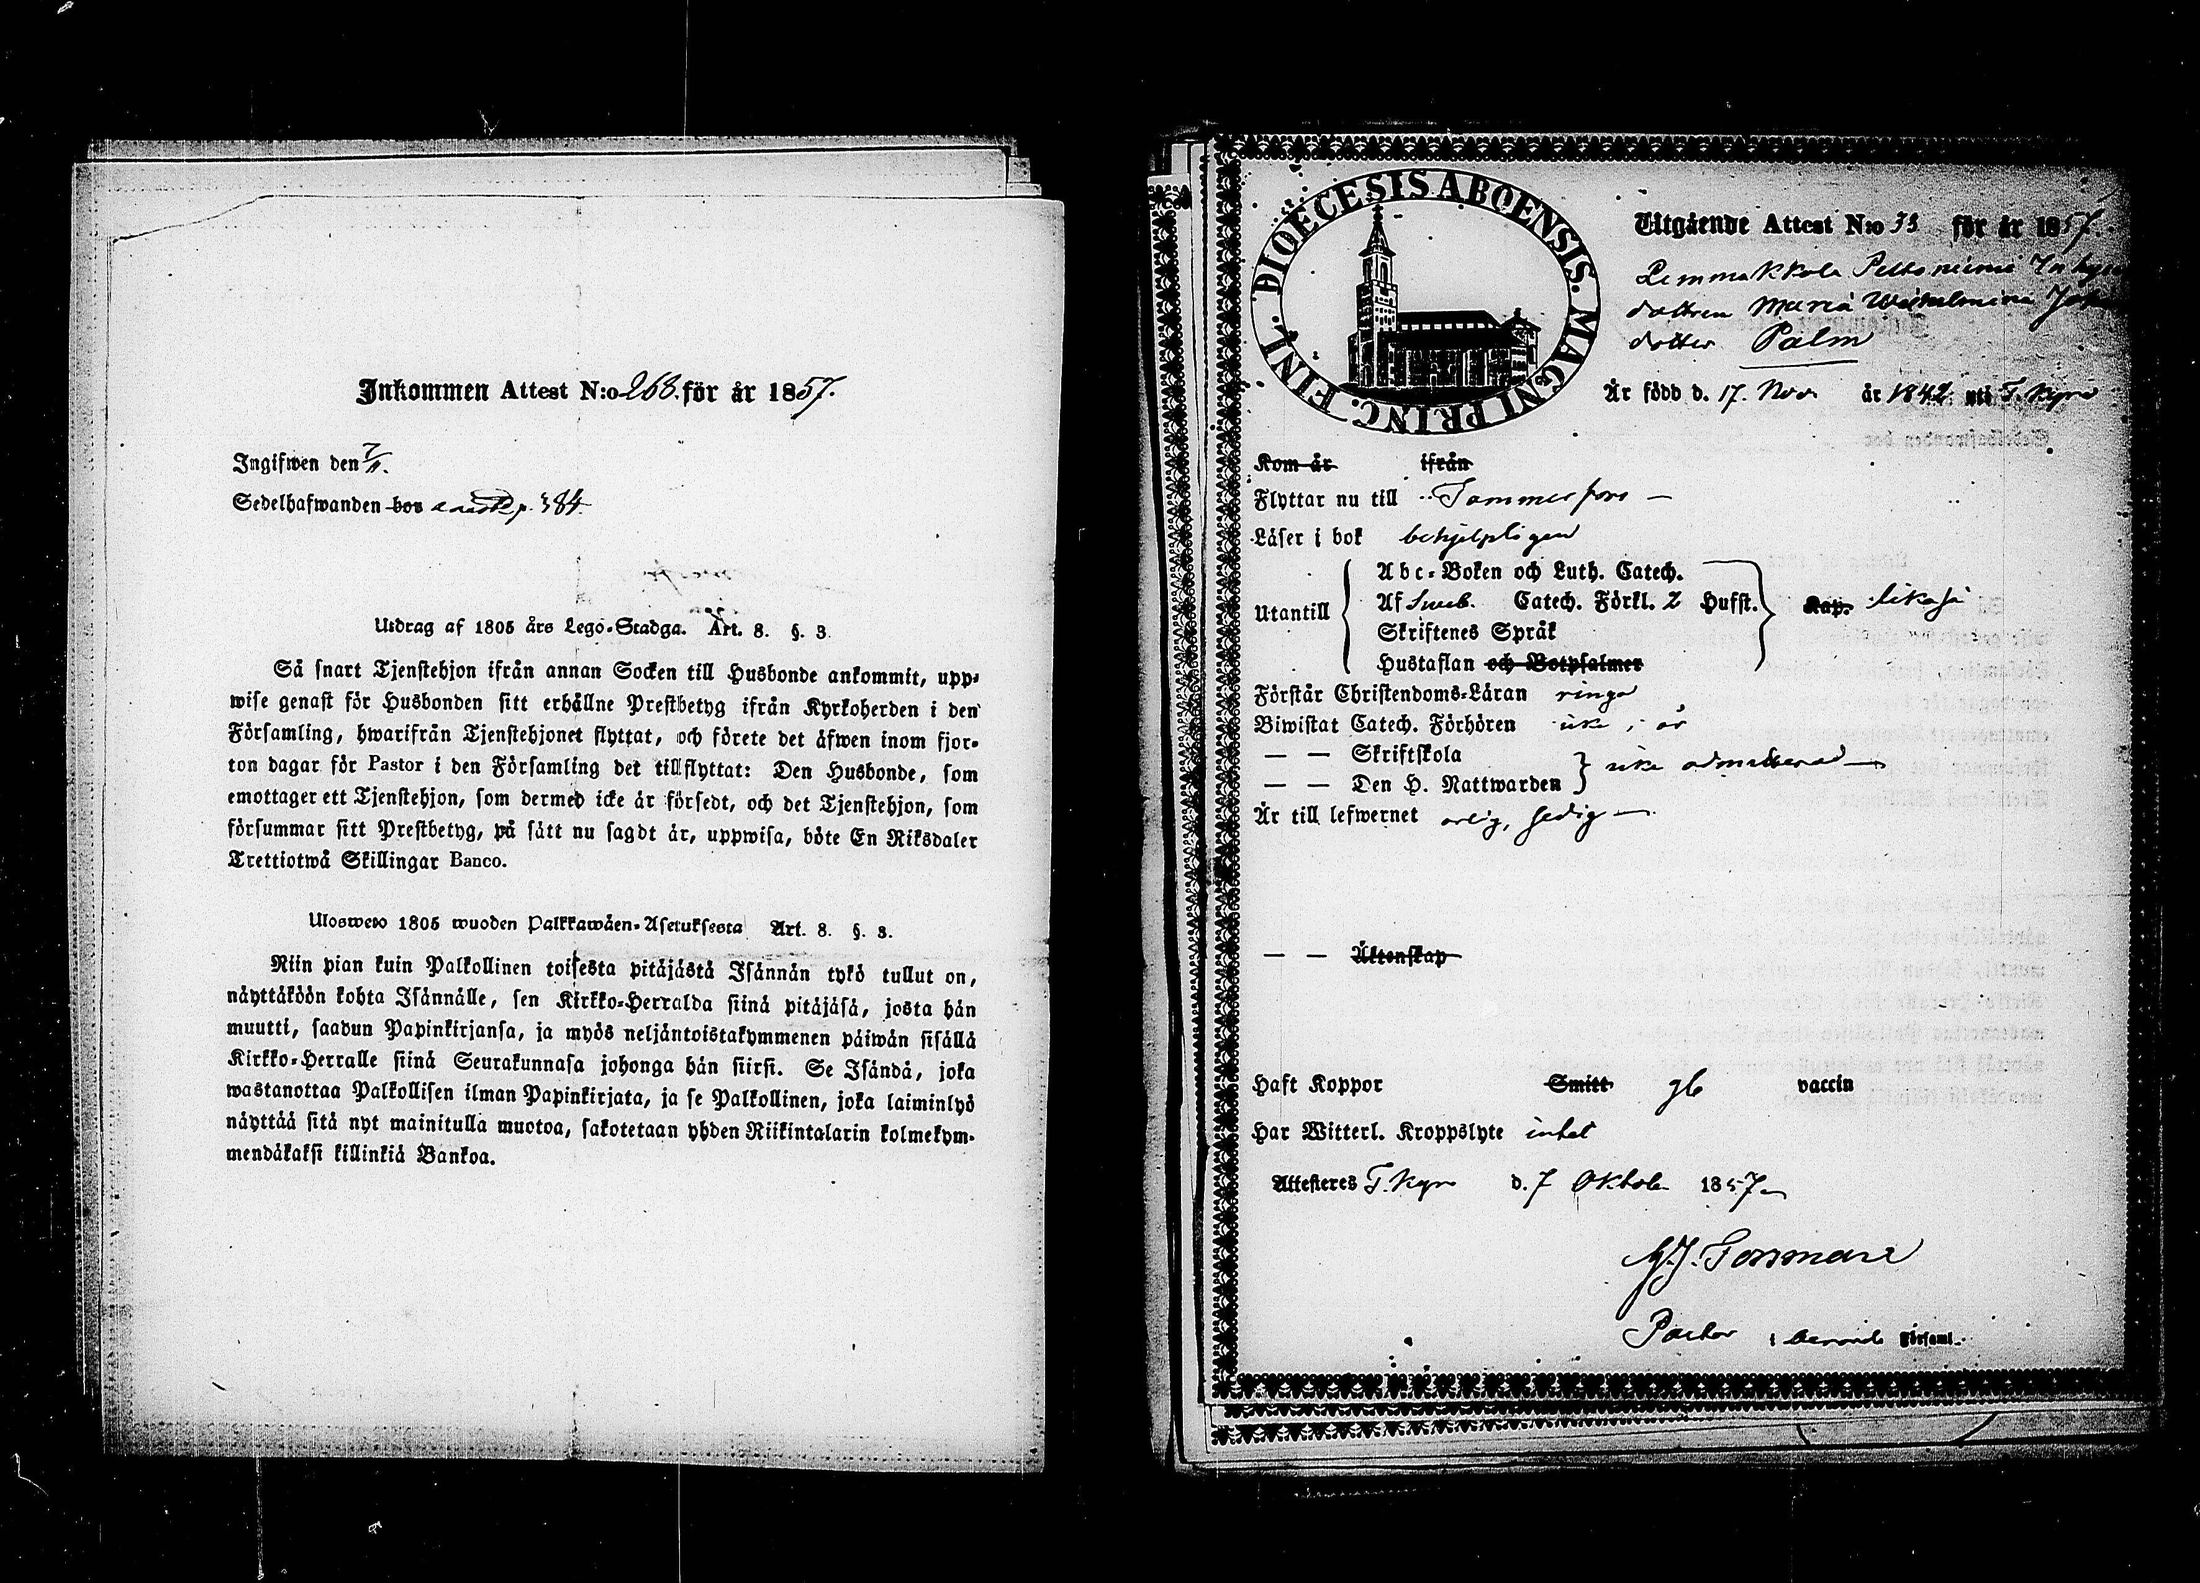 Inkommen Attest N:o 268. för år 1857.
Ingifwen den 7/11.
Sedelhafwanden bor p. 384.
Utdrag af 1805 års Lego-Stadga. Art. 8. §. 3.
Så snart Tjenstehjon ifrån annan Socken till Husbonde ankommit, upp-
wise genast för Husbonden sitt erhållne Prestbetyg ifrån Kyrkoherden i den
Församling, hwarifrån Tjenstehjonet flyttat, och förete det äfwen inom fjor-
ton dagar för Pastor i den Församling det tillflyttat: Den Husbonde, som
emottager ett Tjenstehjon, som dermed icke är försedt, och det Tjenstehjon, som
försummar sitt Prestbetyg, på sätt nu sagdt är, uppwisa, böte En Riksdaler
Trettiotwå Skillingar Banco.
Ulosweto 1805 wuoden Palkkawäen-Asetuksesta Art. 8. §. 3.
Niin pian kuin Palkollinen toisesta pitäjästä Isännän tykö tullut on,
näyttäköön kohta Isännälle, sen Kirkko-Herralda siinä pitäjäsä, josta hän
muutti, saadun Papinkirjansa, ja myös neljäntoistakymmenen päiwän sisällä
Kirkko-Herralle siinä Seurakunnasa johonga hän siirsi. Se Isändä, joka
wastanottaa Palkollisen ilman Papinkirjata, ja se Palkollinen, joka laiminlyö
näyttää sitä nyt mainitulla muotoa, sakotetaan yhden Riikintalarin kolmekym-
mendäkaksi killinkiä Bankoa.
DIOECESIS ABOENSIS. MAGNI PRINC. FINL.
Utgående Attest N:o 33 för år 1857.
Lemmakkola Peltoniemi
dottren Maria Wilhelmina
dotter Palm
Är född d. 17. Nov. år 1842 uti T. Kyro
Kom år ifrån
Flyttar nu till Tammerfors —
Läser i bok behjelpligen
Utantill
Abc-Boken och Luth. Catech.
Af Sweb. Catech. Förkl. 2 Hufst. Kap. likaså
Skriftenes Språk
Hustaflan och Botpsalmer
Förstår Christendoms-Läran ringa
Biwistat Catech. Förhören i år
— — Skriftskola
— — Den H. Nattwarden icke admitterad —
Är till lefwernet ärlig, ledig —
— — Äktenskap
Haft Koppor Smitt vaccin
Har Witterl. Kroppslyte intet
Attesteres T. Kyro d. 7 Oktober 1857
Pastor i Församl.